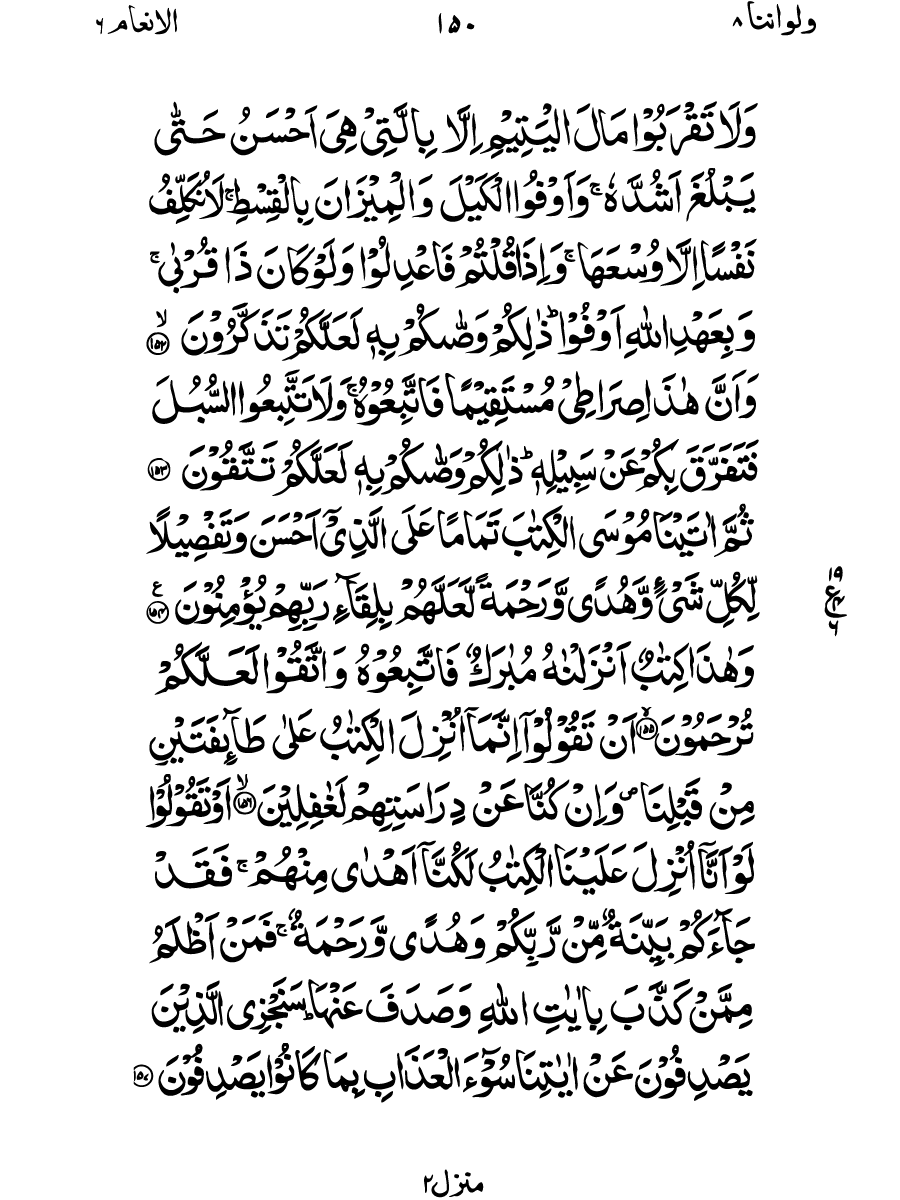 ولواننا ٨
١٥٠
الانعام ٦
وَلَا تَقْرَبُوْا مَالَ الْيَتِيْمِ اِلَّا بِالَّتِيْ هِيَ اَحْسَنُ حَتّٰى
يَبْلُغَ اَشُدَّهٗ ۚ وَاَوْفُوا الْكَيْلَ وَالْمِيْزَانَ بِالْقِسْطِ ۚ لَا نُكَلِّفُ
نَفْسًا اِلَّا وُسْعَهَا ۚ وَاِذَا قُلْتُمْ فَاعْدِلُوْا وَلَوْ كَانَ ذَا قُرْبٰى ۚ
وَبِعَهْدِ اللّٰهِ اَوْفُوْا ؕ ذٰلِكُمْ وَصّٰىكُمْ بِهٖ لَعَلَّكُمْ تَذَكَّرُوْنَ ۙ ﴿١٥٢﴾
وَاَنَّ هٰذَا صِرَاطِيْ مُسْتَقِيْمًا فَاتَّبِعُوْهُ ۚ وَلَا تَتَّبِعُوا السُّبُلَ
فَتَفَرَّقَ بِكُمْ عَنْ سَبِيْلِهٖ ؕ ذٰلِكُمْ وَصّٰىكُمْ بِهٖ لَعَلَّكُمْ تَتَّقُوْنَ ﴿١٥٣﴾
ثُمَّ اٰتَيْنَا مُوْسَى الْكِتٰبَ تَمَامًا عَلَى الَّذِيْٓ اَحْسَنَ وَتَفْصِيْلًا
لِّكُلِّ شَيْءٍ وَّهُدًى وَّرَحْمَةً لَّعَلَّهُمْ بِلِقَآءِ رَبِّهِمْ يُؤْمِنُوْنَ ﴿١٥٤﴾ ع
١٩
ع ٤
٦
وَهٰذَا كِتٰبٌ اَنْزَلْنٰهُ مُبٰرَكٌ فَاتَّبِعُوْهُ وَاتَّقُوْا لَعَلَّكُمْ
تُرْحَمُوْنَ ۙ ﴿١٥٥﴾ اَنْ تَقُوْلُوْٓا اِنَّمَآ اُنْزِلَ الْكِتٰبُ عَلٰى طَآئِفَتَيْنِ
مِنْ قَبْلِنَا ۪ وَاِنْ كُنَّا عَنْ دِرَاسَتِهِمْ لَغٰفِلِيْنَ ۙ ﴿١٥٦﴾ اَوْ تَقُوْلُوْا
لَوْ اَنَّآ اُنْزِلَ عَلَيْنَا الْكِتٰبُ لَكُنَّآ اَهْدٰى مِنْهُمْ ۚ فَقَدْ
جَآءَكُمْ بَيِّنَةٌ مِّنْ رَّبِّكُمْ وَهُدًى وَّرَحْمَةٌ ۚ فَمَنْ اَظْلَمُ
مِمَّنْ كَذَّبَ بِاٰيٰتِ اللّٰهِ وَصَدَفَ عَنْهَا ؕ سَنَجْزِى الَّذِيْنَ
يَصْدِفُوْنَ عَنْ اٰيٰتِنَا سُوْٓءَ الْعَذَابِ بِمَا كَانُوْا يَصْدِفُوْنَ ﴿١٥٧﴾
منزل ٢